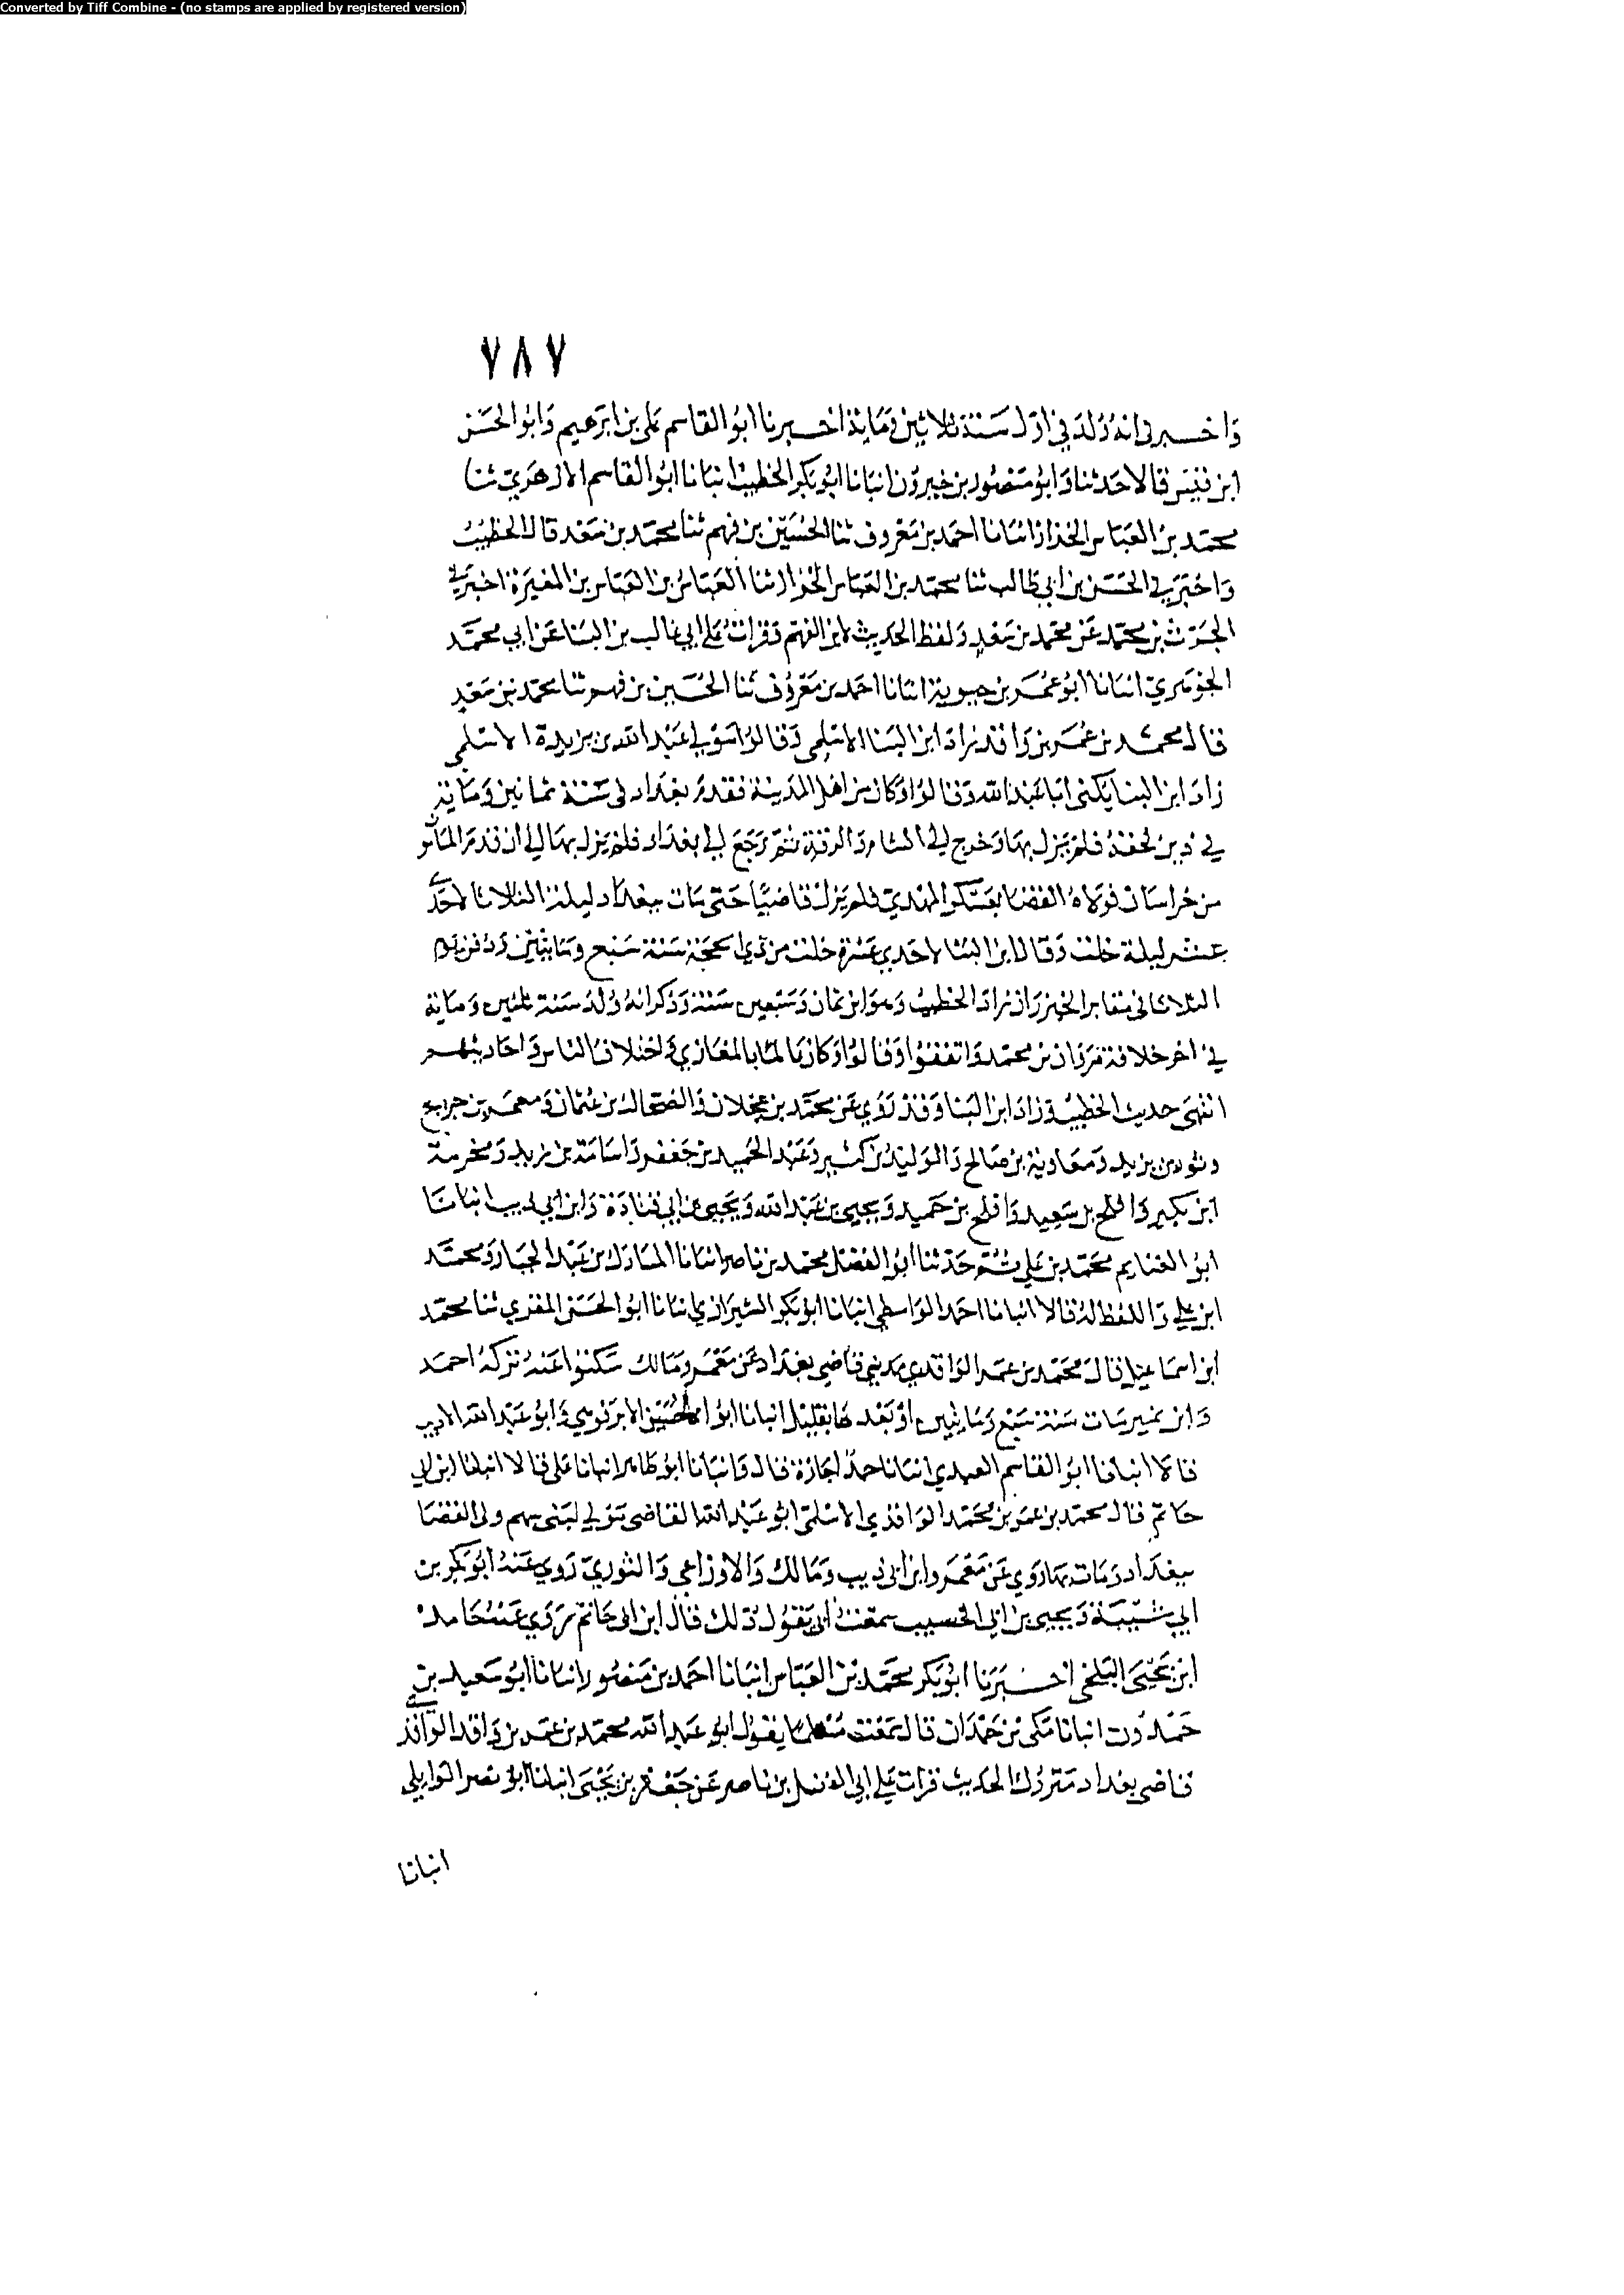 Converted by Tiff Combine - (no stamps are applied by registered version)
٧٨٧
وَاخبرني انهُ وُلدَ في اوّل سَنة ثلاثين وَمَايةٍ اخبرنا ابوُ القاسم عَلى بن ابرَهيم وَابوُ الحسَن
ابن قبيَس قالا حَدثنا وَابوُ مَنصُور بن خيروُن انبَانا ابوُ بَكر الخطيبُ انبَانا ابوُ القاسم الازهَريّ ثنا
محمَد بنُ العَبّاس الخزاز انبَانا احمَد بن مَعْروف ثنا الحُسَيْن بن فهم ثنا محمّد بن سَعْد قال الخطيبُ
وَاخبَرَني الحَسَن بن ابي طالب ثنا محمّد بن العَباس الخزاز ثنا العَبّاسُ بن العَبّاس بن المغيرَة اخبَرَني
الحَرث بن محمّد عَن محمّد بن سَعْدٍ وَلفظ الحَديث لابن الفهم وَقراتُ عَلى ابي غالب بن البَنا عَن ابي محمَّد
الجَوهَريّ انبَانا ابوُ عُمَر بن حيوية انبَانا احمَد بن مَعْرُوف ثنا الحُسَين بن فهم ثنا محمّد بن سَعْدٍ
قال محمّد بن عُمَر بن وَاقد زاد ابن البَنا الاسْلمى وَقالوُا مَوْلى عَبْد الله بن بريدة الاسْلمى
زادَ ابن البنا يكنى ابَا عَبْد الله وَقالوُا وَكان من اهْل المدَينة فقدمَ بغداد في سَنة ثمانين وَمَايةٍ
في دَين لحقهُ فلمْ يَزل بهَا وَخرج الى الشام وَالرقةِ ثمّ رَجَعَ الى بغدَاد فلمْ يَزل بهَا الى ان قدمَ المَامُون
من خُراسَان فوَلاهُ القضَا بعَسْكر المهدي فلم يَزل قاضيًا حَتى مَات ببغداد ليلة الثلاثا لاحدَى
عشر ليلة خلت وَقال ابن البَنا لاحدي عَشرة خلت من ذي الحجَة سَنة سَبع وَمَايتَيْن وَدُفن يَوم
الثلاثا في مقابر الخيزرَان زادَ الخطيبُ وَهوَ ابن ثمان وَسَبعين سَنة وَذكر انهُ وُلدَ سَنة ثلثين وَمَاية
في اخر خلافة مَروَان بن محمّد وَاتفقوُا وَقالوُا وَكان عَالمًا بالمغازي وَاختلاف الناس وَاحَاديثهم
انتهىَ حديث الخطيبُ وَزادَ ابن البَنا وَقدْ رَوي عَن محمّد بن عجلان وَالضحاك بن عثمان وَمَعمَر وابن جريج
وثور بن يزيد وَمعَاوية بن صَالح وَالوَليدُ بن كثير وَعَبْد الحَميد بن جَعْفر وَاسَامَة بن زيدٍ وَمخرمَة
ابن بكير وَافلح بن سَعيد وَافلح بن حَميد وَيحيى بن عَبْد الله وَيَحيىَ بن ابي قتادَة وَابن ابي ذيب انبانا
ابوُ الغنايم محَمّد بن عَلي ثمّ حَدّثنا ابوُ الفضل محمّد بن ناصر انبَانا المبَارك بن عَبْد الجبَار وَمحمّد
ابن علي وَاللفظ لهُ قالا انبانا احمَد الوَاسطي انبَانا ابوُ بَكر الشيرَازي انبَانا ابوُ الحَسَن المقري ثنا محمّد
ابن اسماعيل قالَ محَمّد بن عمَر الوَاقدي مَدَني قاضي بغدَاد عَن مَعْمَر وَمَالك سَكتوُا عَنهُ تركهُ احمَد
وَابن نمير مَات سَنة سَبْع وَمَايتين اوْ بَعْدهَا بقليل انبانا ابوُ الحُسَيْن الابرَقوهي وَابوُ عَبْد الله الاديب
قالا انبانا ابوُ القاسم العبدي انبَانا حَمدُ اجَازة قال وَانبَانا ابوُ طاهر انبانا عَلى قالا انبانا ابن ابي
حَاتم قال محمّد بن عمر بن محَمّد الوَاقدي الاسْلميّ ابوُ عَبْد الله القاضي مَوْلي لبَني سهم ولي القضَا
ببغدَاد وَمَات بهَا رَوي عَن مَعْمَر وَابن ابي ذيب وَمَالك وَالاوْزاعي وَالثوريّ رَوي عَنهُ ابوُ بَكر بن
ابي شَيبَة وَيحيي بن ابي الخصيب سَمعْتُ ابي يَقوُل ذلك قال ابن ابي حَاتم رَوَي عَنهُ حَامدُ
ابن يَحْيَىَ البَلخي اخبَرَنا ابوُ بَكر محمّد بن العَبّاس انبَانا احمَد بن مَنصُور انبَانا ابوُ سَعيد بن
حَمْدوُن انبانا مَكي بْن عَبْدَان قال سَمعْت مُسْلما يقول ابوُ عَبد الله محمّد بن عُمَر بن وَاقد الوَاقدي
قاضي بغداد مَتروُك الحَديث قرات عَلي ابي الفضل بن ناصر عَن جَعْفر بن يَحْيَى انبانا ابوُ نصر الوَايلي
انبانا